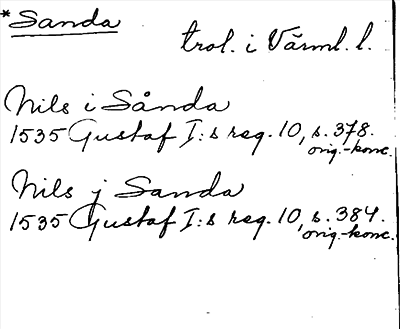 *Sanda
trol. i Värml. l.
Nils i Sånda
1535 Gustaf I:s reg. 10, s. 378.
orig.-konc.
Nils j Sanda
1535 Gustaf I:s reg. 10, s. 384.
orig.-konc.